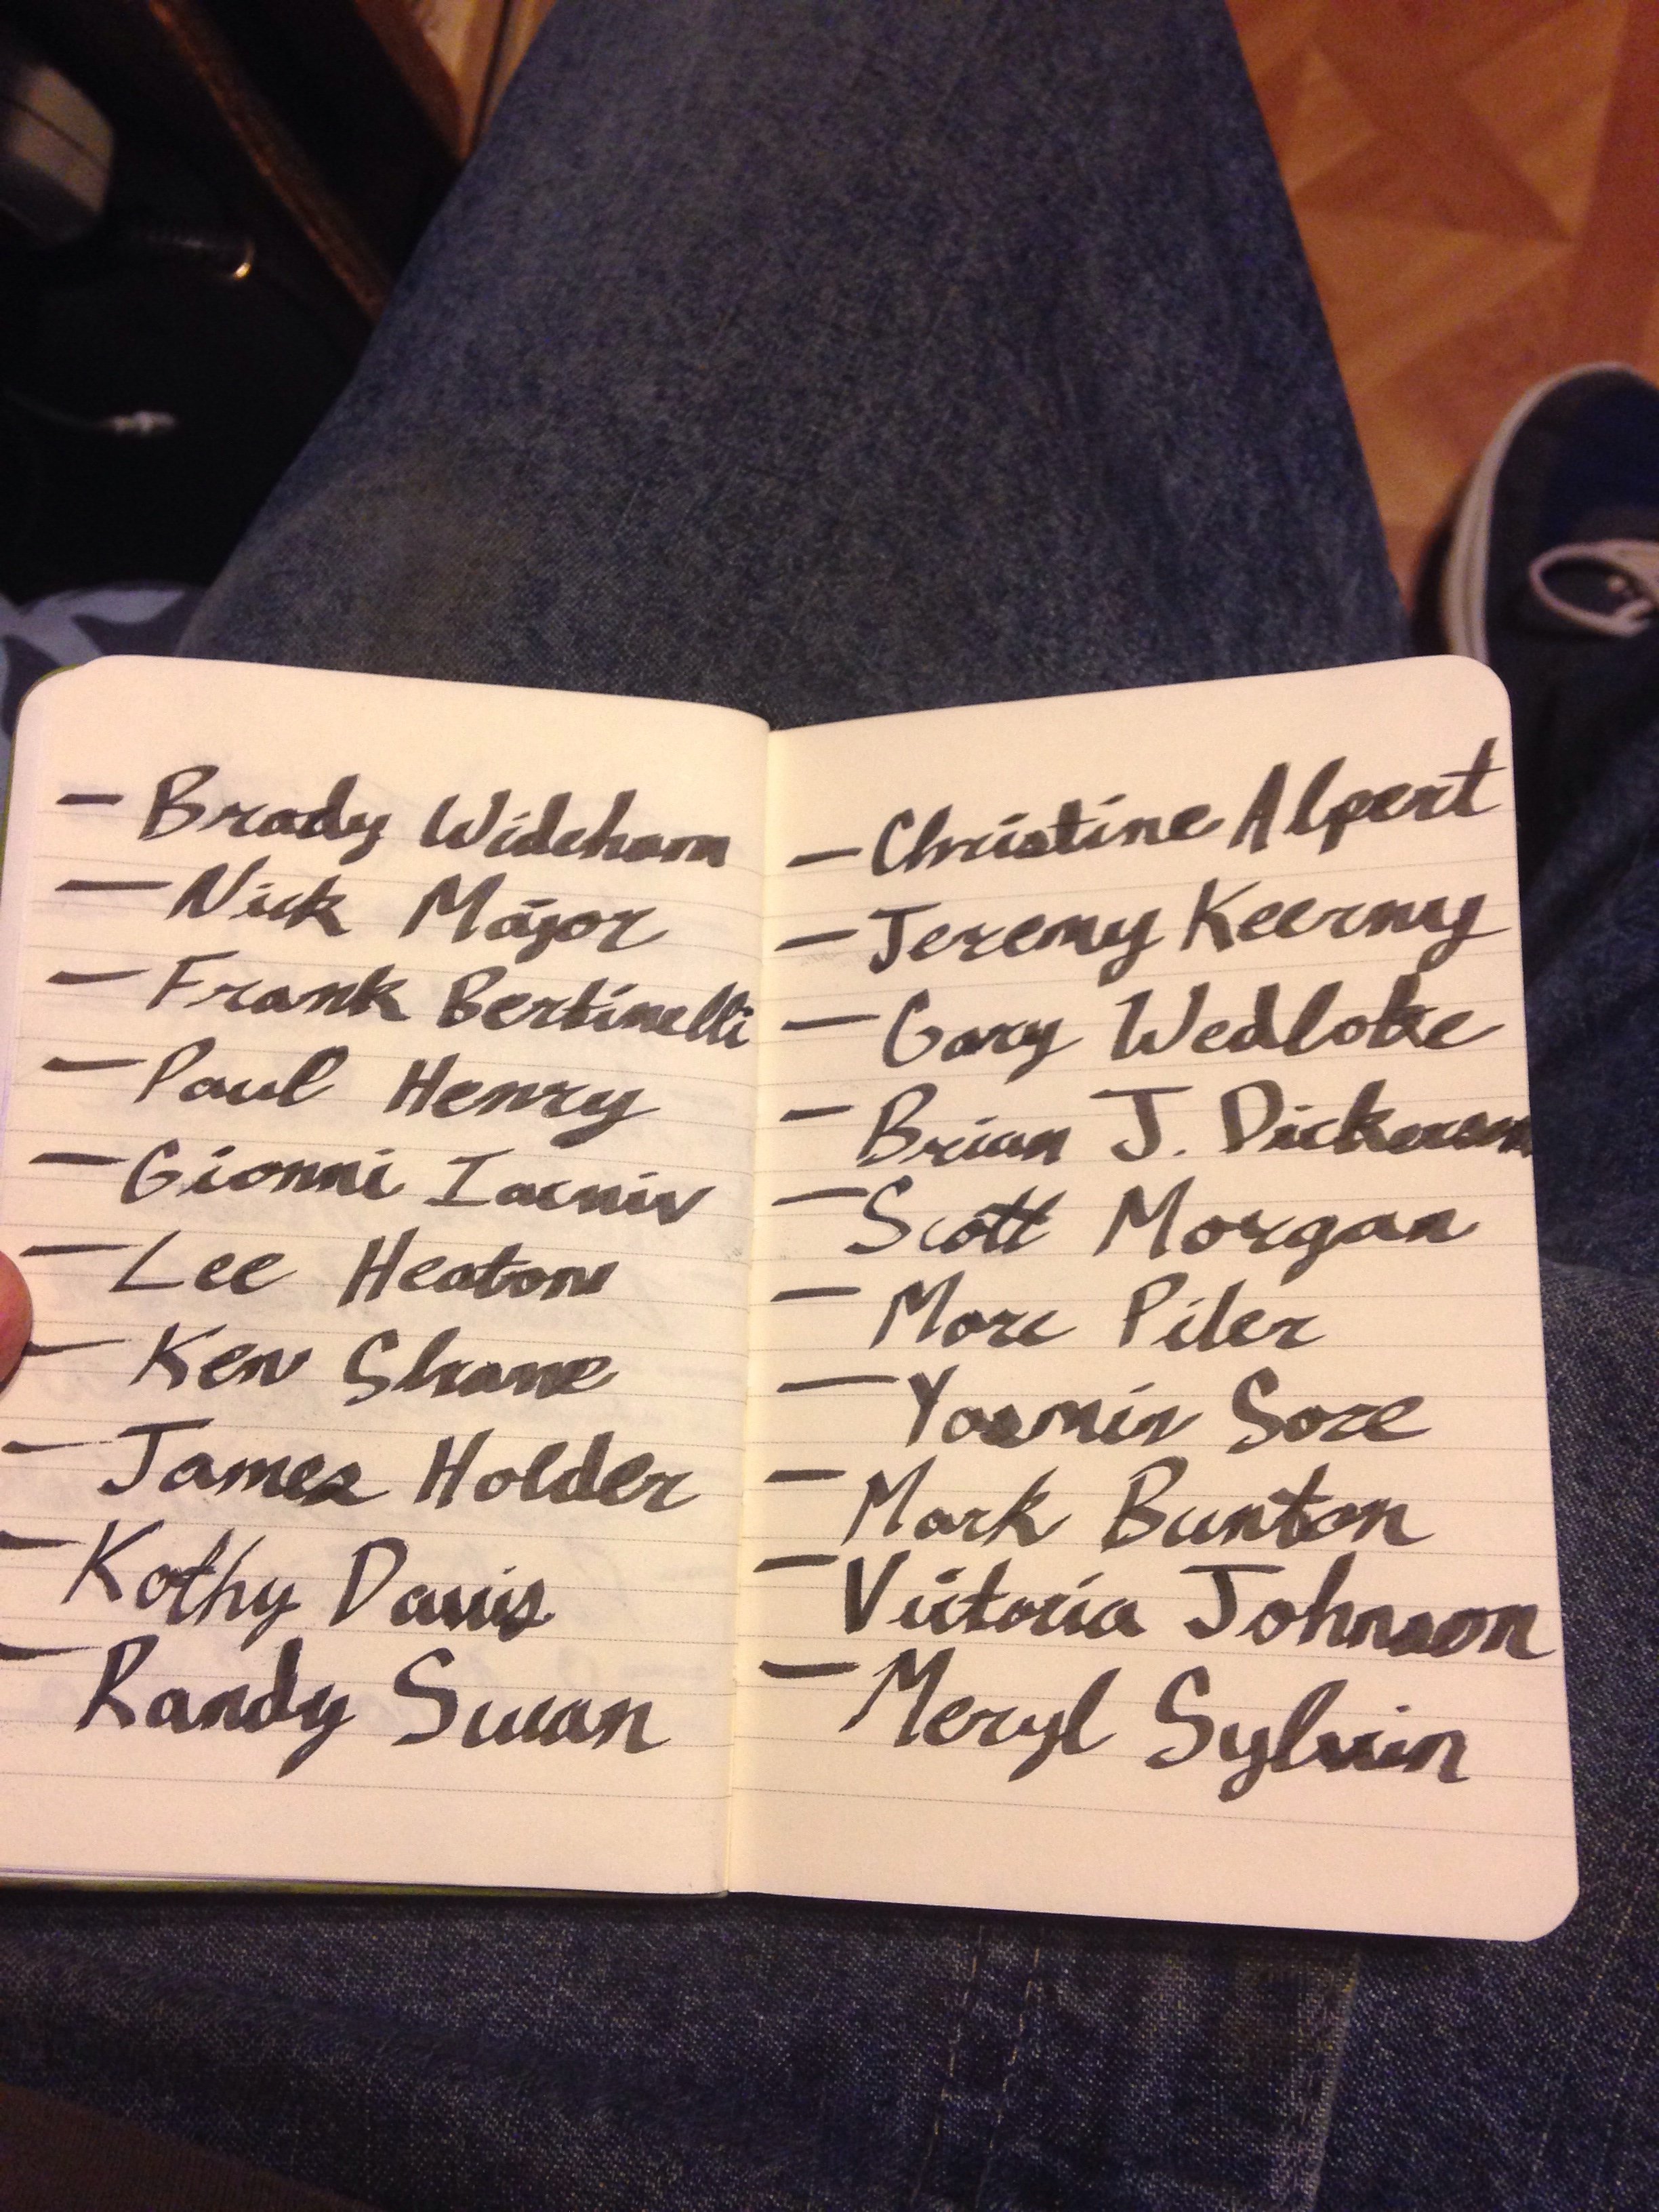 - Brady Wideham
- Nick Major
- Frank Bertinelli
- Paul Henry
- Gionni Iacniv
- Lee Heaton
- Ken Shane
- James Holder
- Kathy Davis
- Randy Swan
- Christine Alpert
- Jeremy Keerny
- Gary Wedloke
- Brian J.
- Scott Morgan
- Marc Piler
- Yasmin Sore
- Mark Bunton
- Victoria Johnson
- Meryl Sylvin